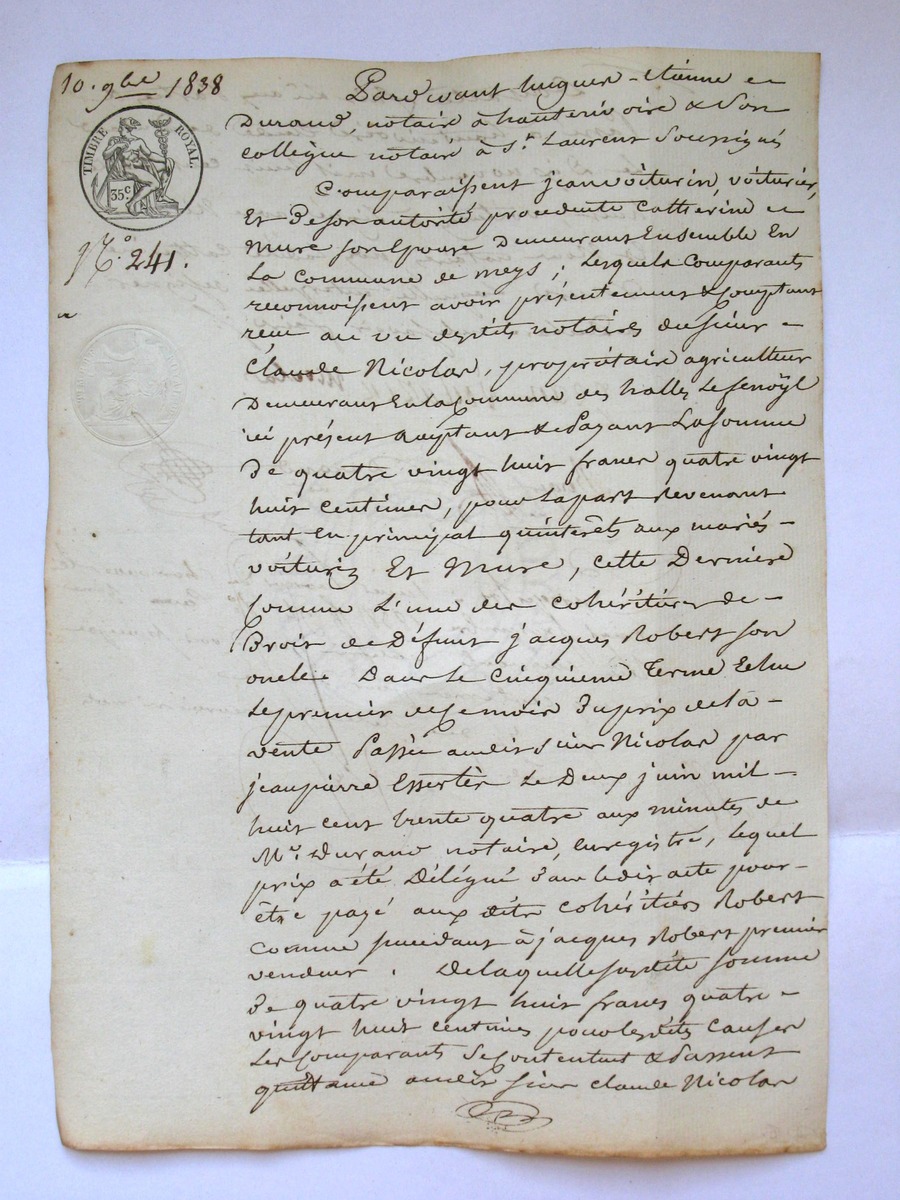 10. 9bre 1838
TIMBRE ROYAL.
35c
No. 241.
Pardevant hugues - etienne
Durand, notaire à hauterivoire & son
collègue notaire à St. Laurent Soussignés
Comparaissent jean voiturin, voiturier,
Et De son autorité procedente Catherine
Mure son Epouse Demeurant Ensemble En
La commune de meys; Lesquels Comparants
reconnoissent avoir présentement & Comptant
reçu au vu desdits notaires du sieur
Claude Nicolas, propriétaire agriculteur
Demeurant En la Commune des halles Le fenoÿl
ici présent acceptant & Payant La somme
De quatre vingt huit francs quatre vingt
huit centimes, pour la part Revenant
tant En principal qu'intérêts aux mariés -
voiturin Et Mure, cette Dernière
Comme L'une des cohéritières de -
Droit de Défunt jacques Robert son
oncle Dans Le Cinquieme Terme Echu
Le premier de ce mois Du prix de la -
vente Passée audit Sieur Nicolas par
jean pierre Essertel Le Deux juin mil -
huit cent trente quatre aux minutes de
Me. Durand notaire, enregistré, Lequel
prix a été Délégué Dans ledit acte pour -
être payé aux dits cohéritiers Robert
comme succedant à jacques Robert premier
vendeur. De laquelle susdite somme
De quatre vingt huit francs quatre -
vingt huit centimes pour lesdites Causes
Les Comparants Se Contentent & Passent
quittance audit sieur Claude Nicolas